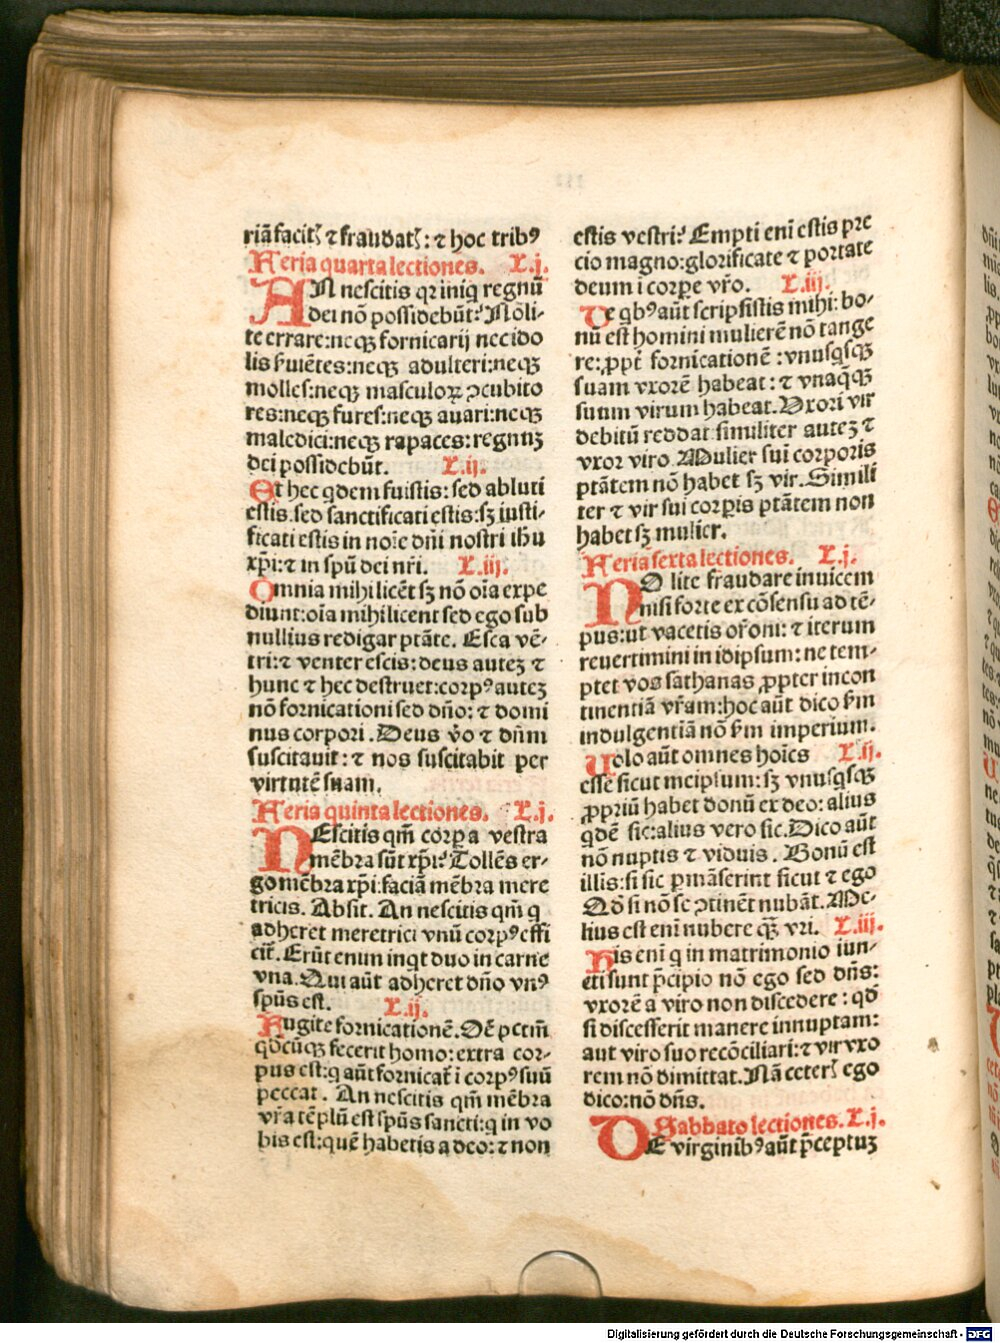 riā facit᷒ ⁊ fraudat᷒: ⁊ hoc tribꝰ
Feria quarta lectiones. L.j.
AN nescitis qꝛ iniq regnū
dei nō possidebūt? Nōli-
te errare:neqꝫ fornicarij nec ido
lis ẜuiētes:neqꝫ adulteri:neqꝫ
molles:neqꝫ masculoꝝ ꝯcubito
res:neqꝫ fures:neqꝫ auari:neqꝫ
maledici:neqꝫ rapaces:regnuꝫ
dei possidebūt. L.ij.
Et hec qdem fuistis: sed abluti
estis.sed sanctificati estis:sꝫ iusti-
ficati estis in noīe dn̄i nostri ih̄u
xp̄i:⁊ in spū dei nr̄i. L.iij.
Omnia mihi licēt sꝫ nō oīa expe
diunt:oīa mihi licent sed ego sub
nullius redigar ptāte. Esca vē-
tri:⁊ venter escis:deus auteꝫ ⁊
hunc ⁊ hec destruet:corpꝰ auteꝫ
nō fornicationi sed dn̄o: ⁊ domi
nus corpori. Deus v̄o ⁊ dn̄m
suscitauit: ⁊ nos suscitabit per
virtutē suam.
Feria quinta lectiones. L.j.
NEscitis qm̄ corpa vestra
mēbra sūt xp̄i? Tollēs er-
go mēbra xp̄i:faciā mēbra mere
tricis. Absit. An nescitis qm̄ q
adheret meretrici vnū corpꝰ effi
cit᷒. Erūt enim inqt duo in carne
vna.Qui aūt adheret dn̄o vnꝰ
spūs est. L.ij.
Fugite fornicationē.Oē pctm̄
qdcūqꝫ fecerit homo:extra cor-
pus est:q aūt fornicat᷒ i corpꝰ suū
peccat. An nescitis qm̄ mēbra
vr̄a tēplū est spūs sancti:q in vo
bis est:quē habetis a deo:⁊ non
estis vestri? Empti eni estis pre
cio magno:glorificate ⁊ portate
deum i corpe vr̄o. L.iij.
De qbꝰ aūt scripsistis mihi: bo-
nū est homini mulierē nō tange
re:ꝓpt᷒ fornicationē :vnusqsqꝫ
suam vxorē habeat: ⁊ vnaq̄qꝫ
suum virum habeat.Vxori vir
debitū reddat similiter auteꝫ ⁊
vxor viro. Mulier sui corporis
ptātem nō habet sꝫ vir.Simili
ter ⁊ vir sui corpis ptātem non
habet sꝫ mulier.
Feria sexta lectiones. L.j.
NOlite fraudare inuicem
nisi forte ex cōsensu ad tē-
pus:ut vacetis or̄oni: ⁊ iterum
reuertimini in idipsum: ne tem-
ptet vos sathanas ꝓpter incon
tinentiā vr̄am:hoc aūt dico ẜm
indulgentiā nō ẜm imperium.
Uolo aūt omnes hoīes L.ij.
esse sicut meipsum: sꝫ vnusqsqꝫ
ꝓpriū habet donū ex deo: alius
qdē sic:alius vero sic.Dico aūt
nō nuptis ⁊ viduis. Bonū est
illis:si sic pmāserint sicut ⁊ ego
Qd si nō se ꝯtinēt nubāt.Me-
lius est eni nubere qꝫ vri. L.iij.
His eni q in matrimonio iun-
cti sunt p̄cipio nō ego sed dn̄s:
vxorē a viro non discedere: qd
si discesserit manere innuptam:
aut viro suo recōciliari:⁊ vir vxo
rem nō dimittat.Nā ceter᷒ ego
dico:nō dn̄s.
Sabbato lectiones. L.j.
DE virginibꝰ aūt p̄ceptuꝫ
Digitalisierung gefördert durch die Deutsche Forschungsgemeinschaft - DFG